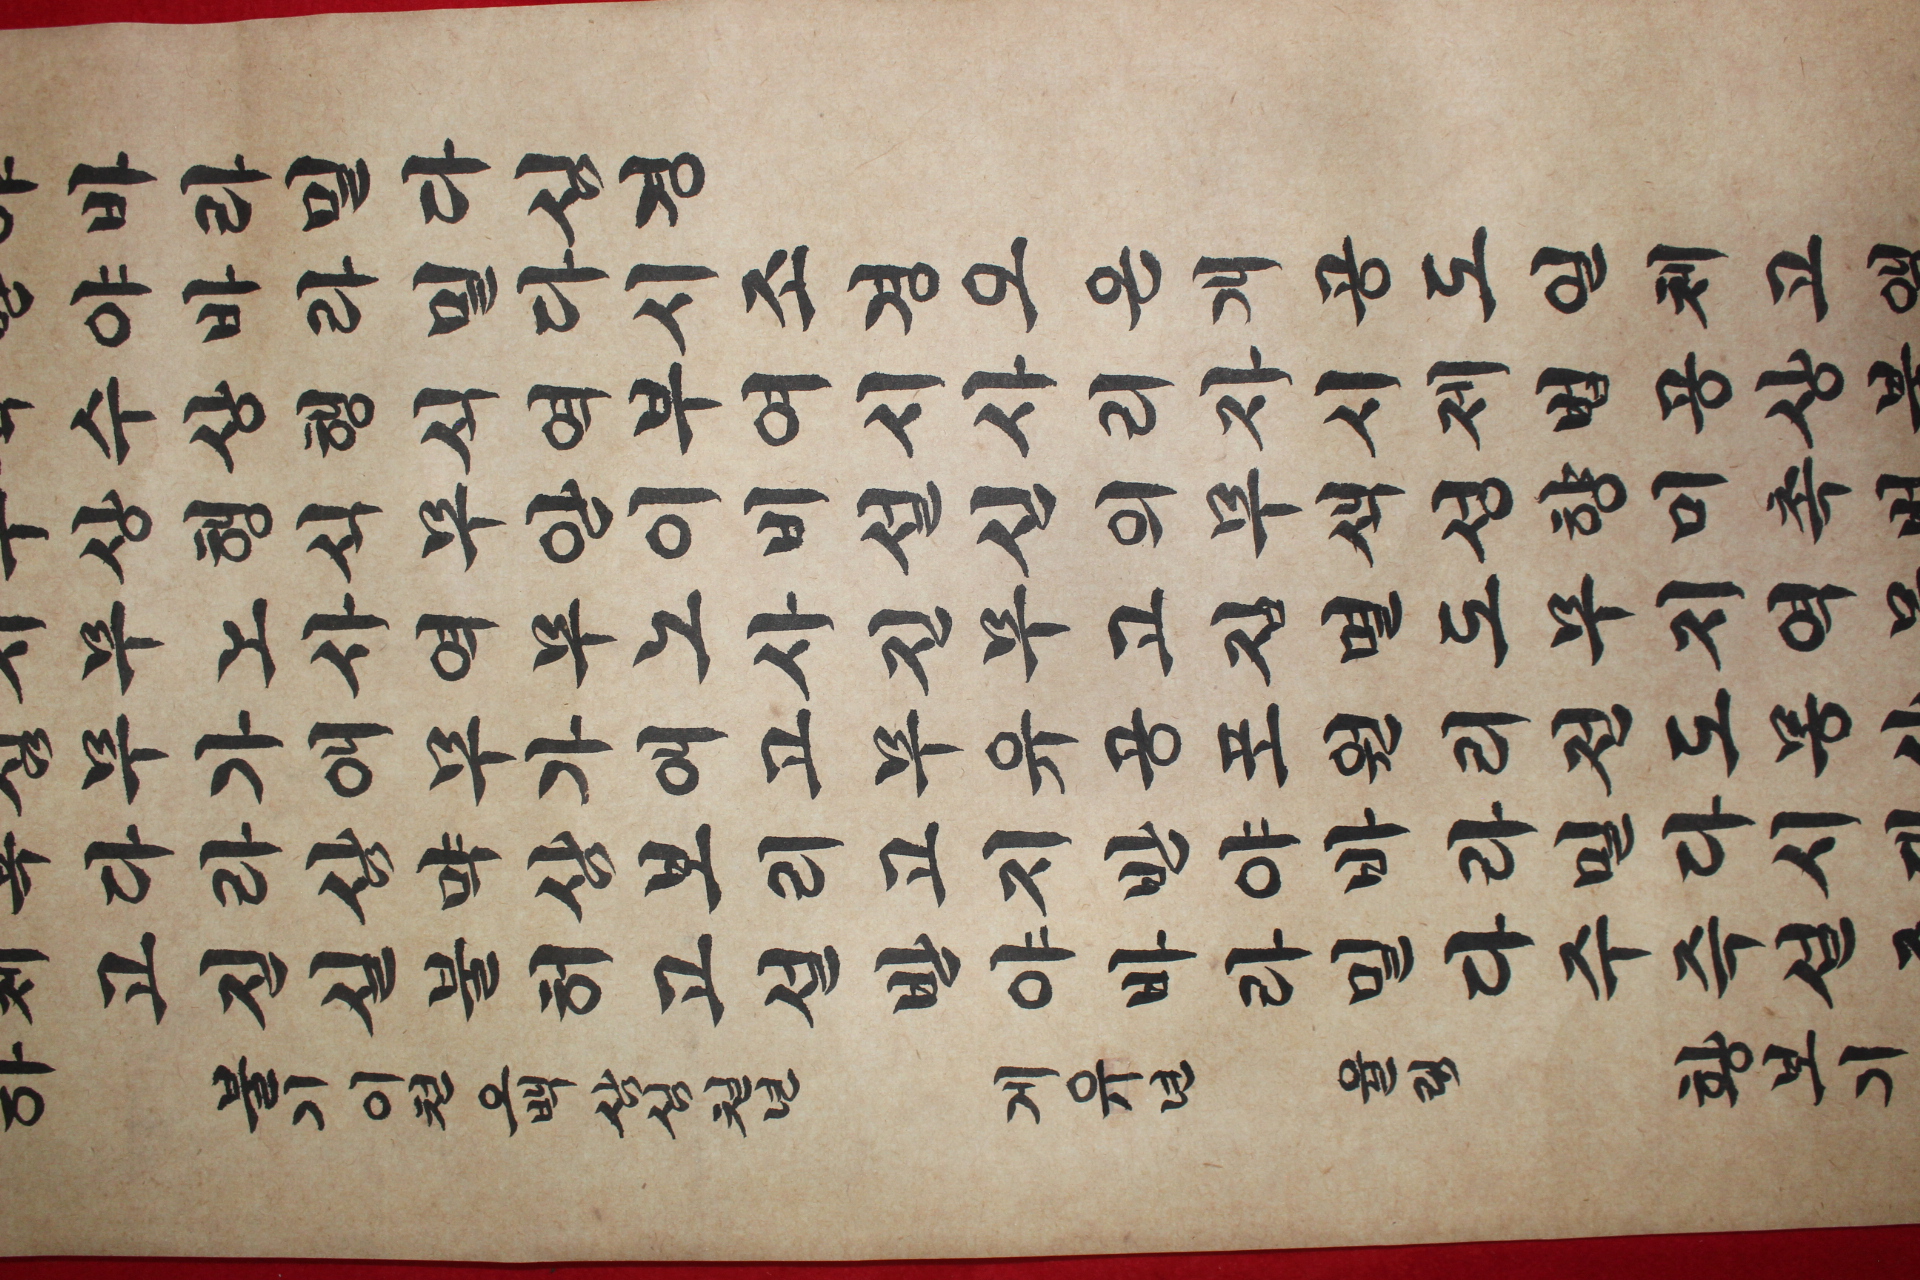 야바라밀다심경
반야바라밀다시조경오온개공도일체고액
식수상행식역부여시사리자시제법공상불
수상행식무안이비설신의무색성향미촉법
지무노사역무노사진무고집멸도무지역무
심무가애무가애고무유공포원리전도몽상
다라삼먁삼보리고지반야바라밀다시대
체고진실불허고설반야바라밀다주즉설주
하
불기 이천 오백 삼십 칠년 게유년 율림 황보기